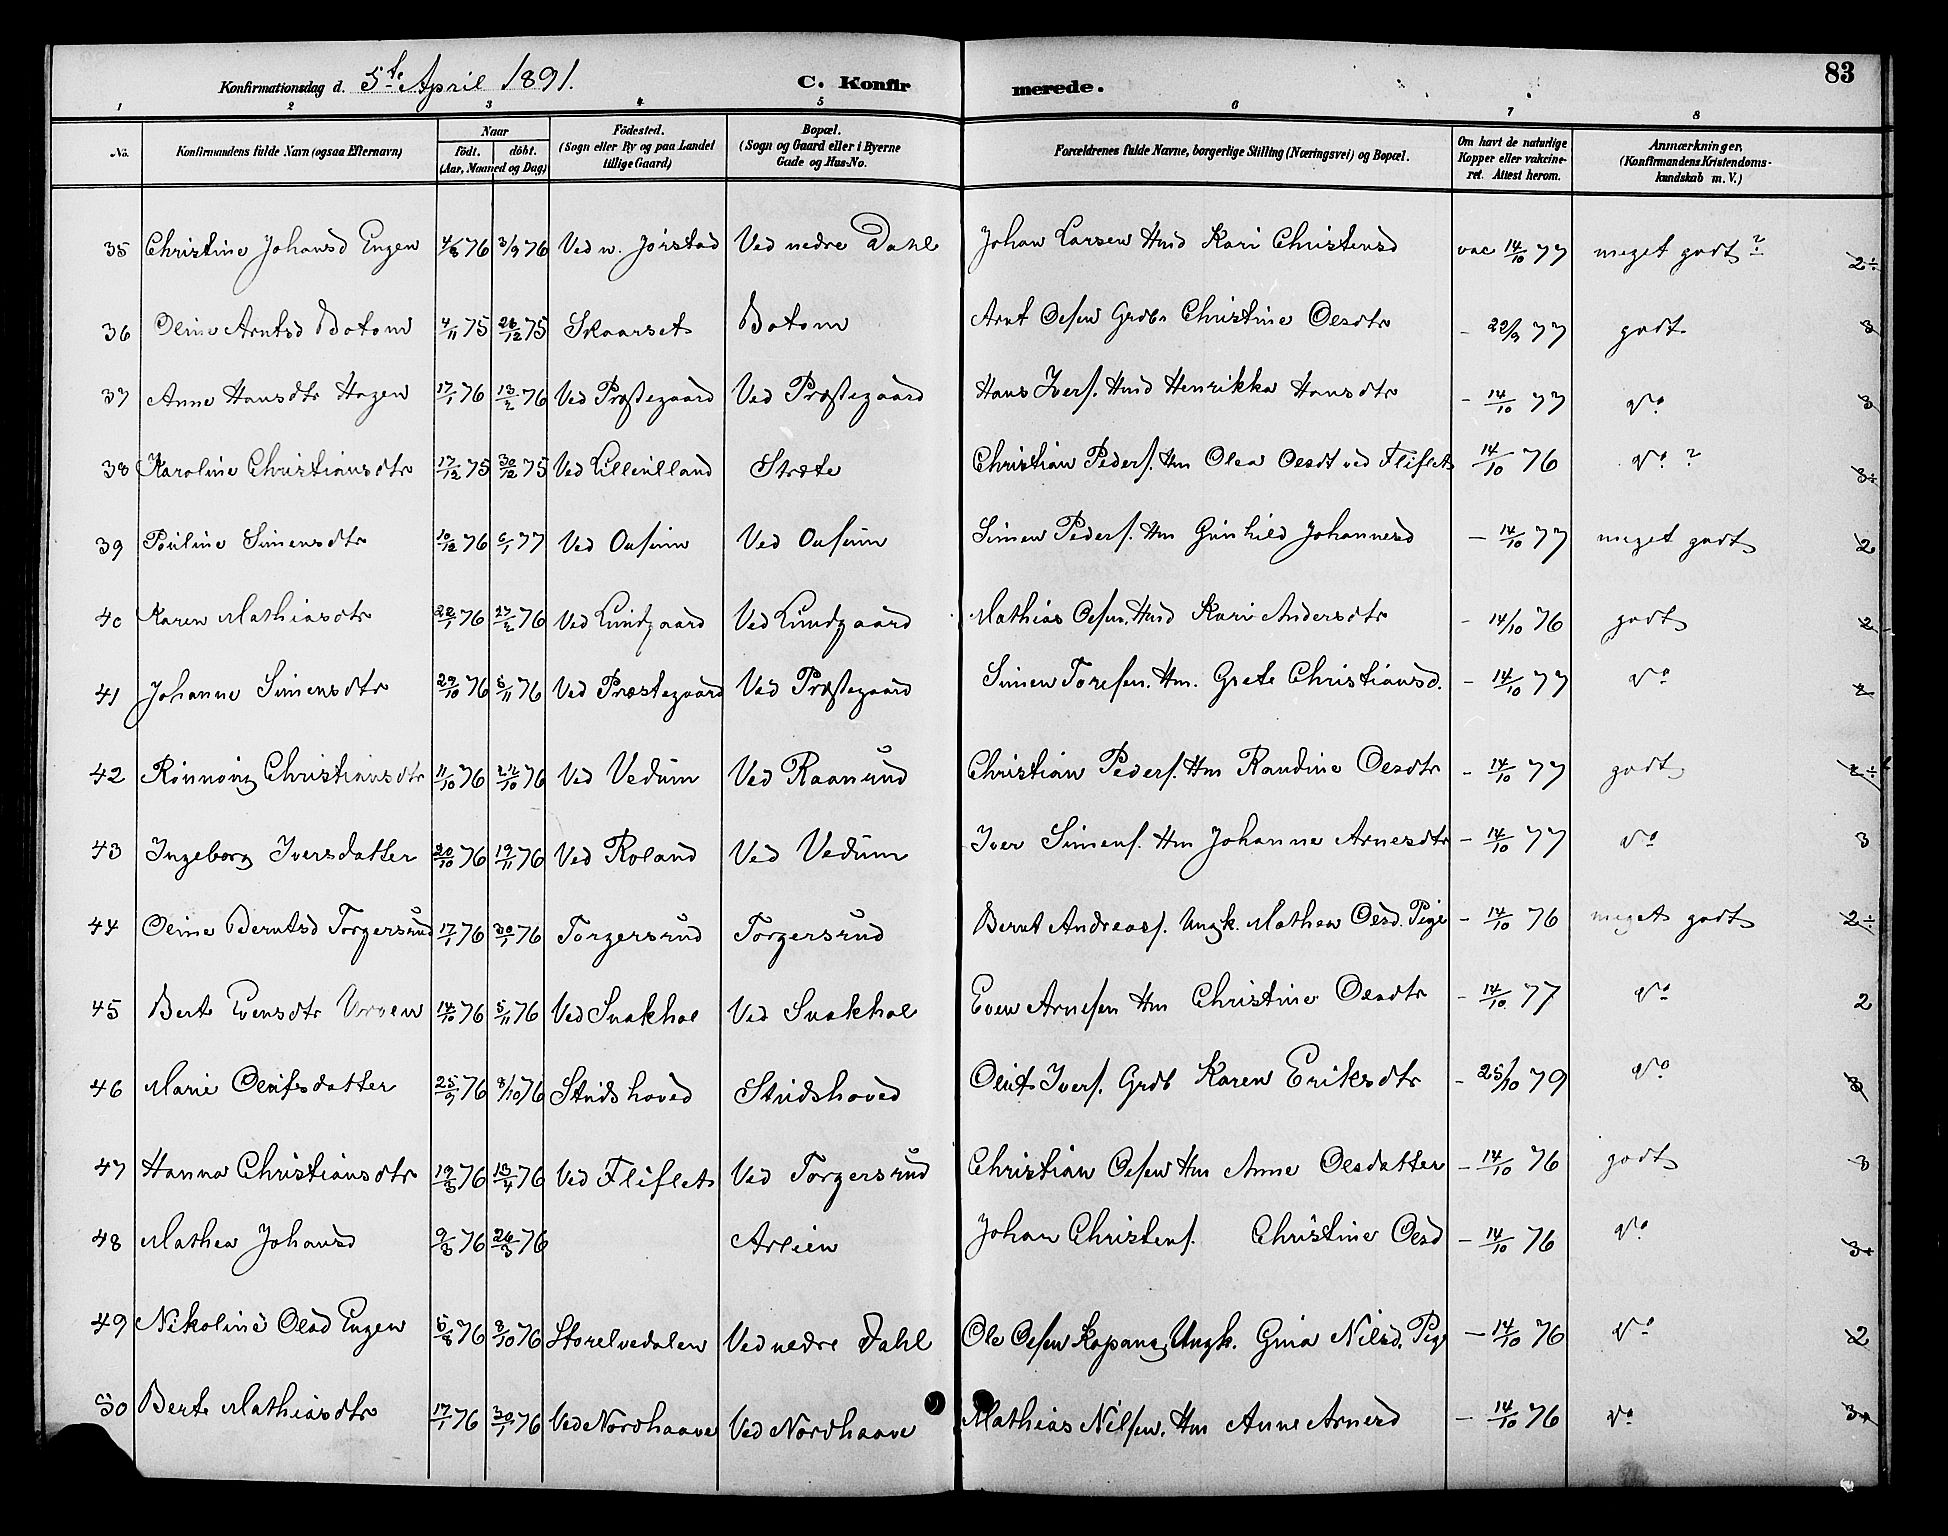 83
Konfirmationsdag d. 5te April 1891. C. Konfirmerede.
1 2 3 4 5 6 7 8
No. Konfirmandens fulde Navn (ogsaa Efternavn) Naar födt. döbt. (Aar, Maaned og Dag) Födested. (Sogn eller By og paa Landet tillige Gaard) Bopæl. (Sogn og Gaard eller i Byerne Gade og Hus-No. Forældrenes fulde Navne, borgerlige Stilling (Næringsvei) og Bopæl. Om havt de naturlige Kopper eller vakcineret. Attest herom. Anmærkninger, (Konfirmandens Kristendomskundskab m. V.)
35 Christine Johansd Engen 4/8 76 3/9 76 Ved n. Jørstad Ved nedre Dahl Johan Larsen Hmd Kari Christensd vac 14/10 77 meget godt ? 2÷
36 Oline Arntsd Botom 4/11 75 26/12 75 Skaarset Botom Arnt Olsen Grdb. Christine Olsdtr - 22/9 77 godt 3
37 Anne Hansdtr Hagen 17/1 76 13/2 76 Ved Præstegaard Ved Præstegaard Hans Ivers. Hmd Henrikka Hansdtr - 14/10 77 do 3
38 Karoline Christiansdtr 17/12 75 30/12 75 Ved Lillulland Stræte Christian Peders. Hm Olea Olsdt ved Fliflet 14/10 76 do ? 3÷
39 Pauline Simensdtr 10/12 76 6/1 77 Ved Ousum Ved Ousum Simen Peders. Hm Gunhild Johannesd - 14/10 77 meget godt 2
40 Karen Mathiasdtr 22/1 76 27/2 76 Ved Lundgaard Ved Lundgaard Mathias Olsen. Hmd Kari Andersdtr - 14/10 76 godt 2
41 Johanne Simensdtr 29/10 76 5/11 76 Ved Præstegaard Ved Præstegaard Simen Toresen. Hm. Grete Christiansd. - 14/10 77 do 2
42 Rønnoug Christiansdtr 11/10 76 22/10 76 Ved Vedum Ved Raanund Christian Peders. Hm Randine Olsdtr - 14/10 77 godt 2÷
43 Ingeborg Iversdatter 20/10 76 19/11 76 Ved Roland Ved Vedum Iver Simens. Hm Johanne Arnesdtr - 14/10 77 do 3
44 Oline Berntsd Torgersrud 17/1 76 30/1 76 Torgersrud Torgersrud Bernt Andreas. Ungk. Mathea Olsd. Pige - 14/10 76 meget godt 2÷
45 Berte Evensdtr 14/10 76 5/11 76 Ved Snakhol Ved Snakhol Even Arnesen Hm Christine Olsdtr - 14/10 77 do 2
46 Marie Olufsdatter 25/9 76 8/10 76 Studshoved Studshoved Oluf Ivers. Grdb Karen Eriksdtr - 25/10 79 do 3
47 Hanna Christiansdtr 19/3 76 13/4 76 Ved Fliflet Ved Torgersrud Christian Olsen Hm Anne Olsdatter - 14/10 76 godt 3
48 Mathea Johansd 9/3 76 26/3 76 Arlien Johan Christens. Christine Olsd - 14/10 76 do 3+
49 Nikoline Olsd Engen 5/8 76 8/10 76 Storelvedalen Ved nedre Dahl Ole Olsen Kopang, Ungk. Gina Nilsd. Pige - 14/10 76 do 2
50 Berte Mathiasdtr 17/1 76 30/1 76 Ved Nordhaave Ved Nordhaave Mathias Nilsen. Hm Anne Arnesd - 14/10 76 do 3+